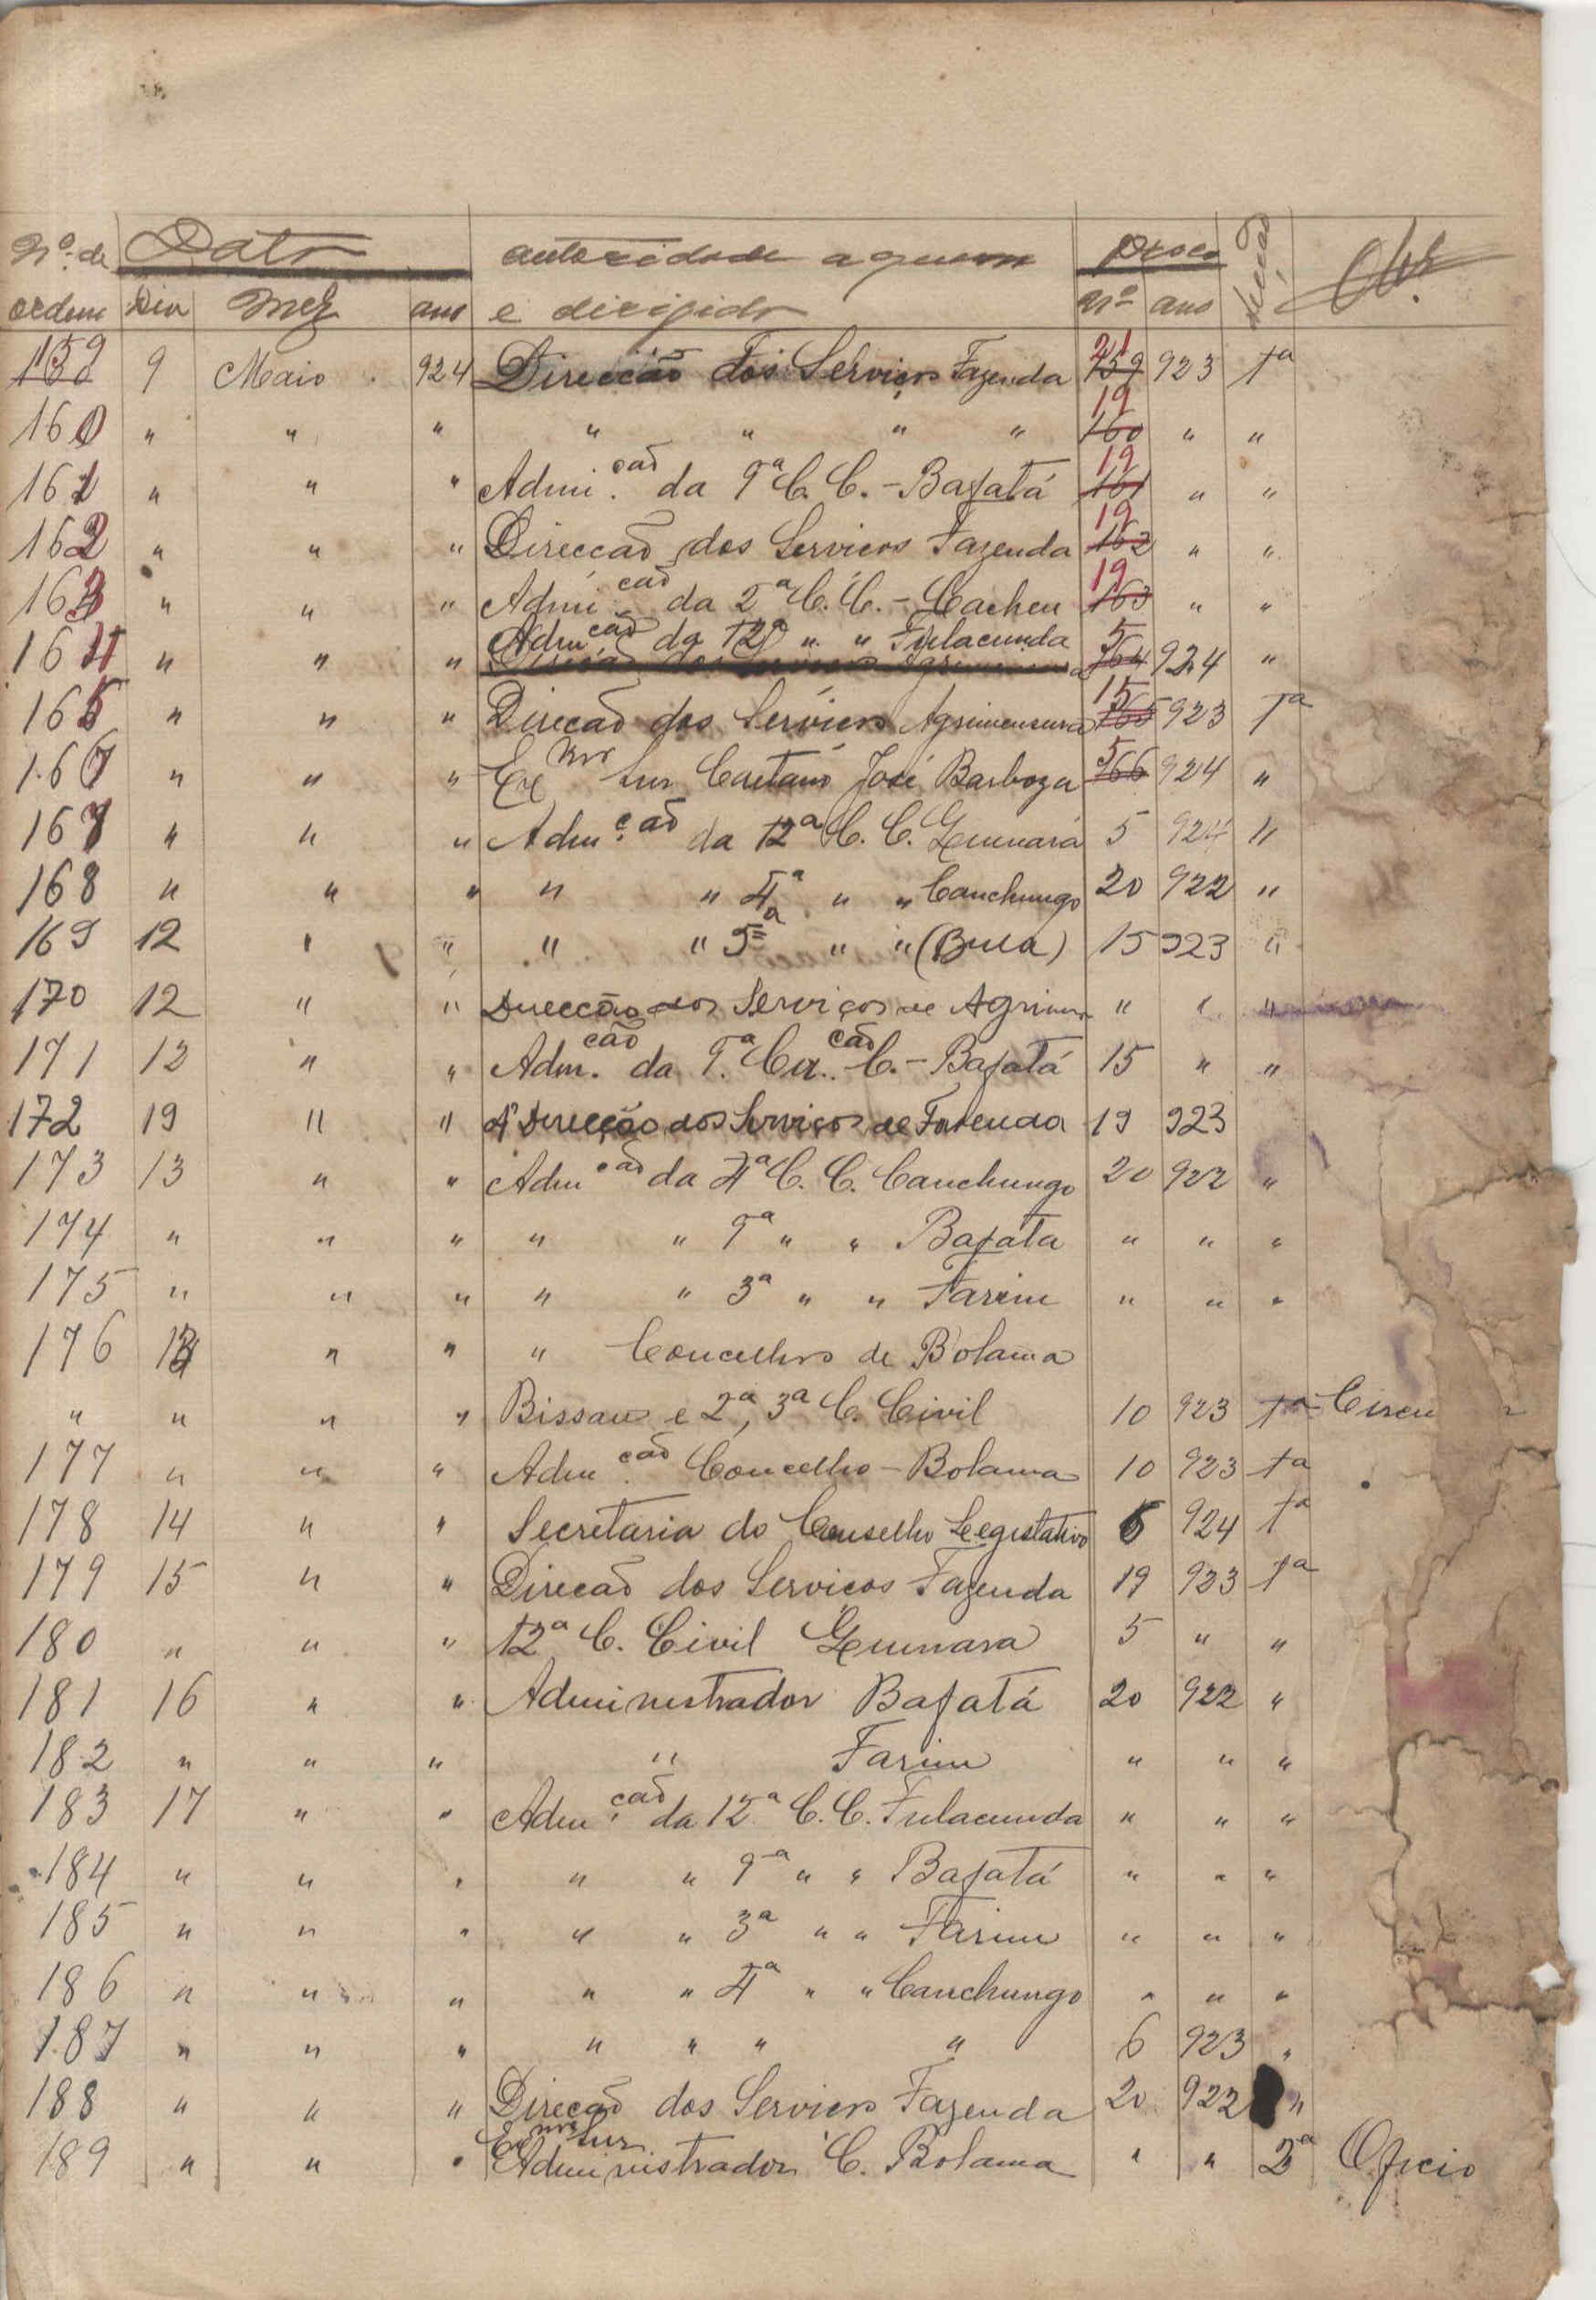 Nº de Data autoridade a quem Proco Secção Obs.
ordem Dia Mez ano é dirigido Nº ano
159 9 Maio 924 Direccão dos Serviços Fazenda 159 21 923 1ª
160 " " " " " " " 160 19 " "
161 " " " Admi.cão da 9ª C. C. - Bafatá 161 19 " "
162 " " " Direccão dos Servicos Fazenda 162 19 " "
163 " " " Admi.cão da 2ª C. C. - Cacheu 163 19 " "
164 " " " Admcão da 12ª " " Fulacunda 164 5 924 "
165 " " " Direcão dos Serviços Agrimensura 165 15 923 1ª
166 " " " Exmo Snr Caetano José Barboza 166 5 924 "
167 " " " Adm.cão da 12ª C. C. Guinara 5 924 "
168 " " " " " 4ª " " Canchungo 20 922 "
169 12 " " " " 5ª " " (Bula) 15 923 "
170 12 " " Direcção dos Serviços de Agrim. " " "
171 12 " " Adm.cão da 9ª Cir.cão C. - Bafatá 15 " "
172 19 " " Á Direcção dos Serviços de Fazenda 19 923
173 13 " " Admcão da 4ª C. C. Canchungo 20 922 "
174 " " " " " 9ª " " Bafata " " "
175 " " " " " 3ª " " Farim " " "
176 13 " " " Concelhos de Bolama
" " " " Bissau e 2ª, 3ª C. Civil 10 923 1ª Circu
177 " " " Adm.cão Concelho - Bolama 10 923 1ª
178 14 " " Secretaria do Conselho Legislativo 6 924 1ª
179 15 " " Direcão dos Servicos Fazenda 19 923 1ª
180 " " " 12ª C. Civil Guinara 5 " "
181 16 " " Administrador Bafatá 20 922 "
182 " " " " Farim " " "
183 17 " " Adm.cão da 12ª C. C. Fulacunda " " "
184 " " " " " 9ª " " Bafatá " " "
185 " " " " " 3ª " " Farim " " "
186 " " " " " 4ª " " Canchungo " " "
187 " " " " " " " 6 923 "
188 " " " Direcão dos Serviços Fazenda 20 922 "
189 " " " Exmo Snr Administrador C. Bolama " " 2ª Oficio